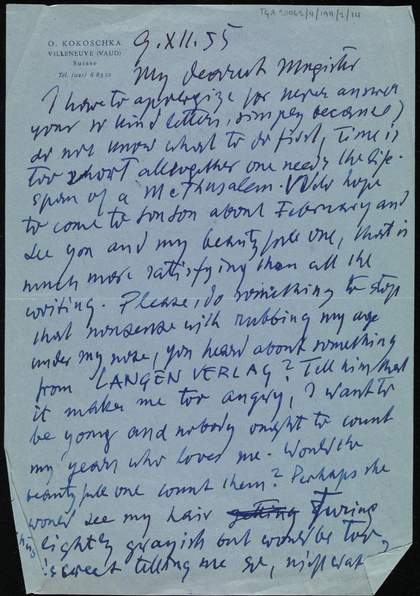 TGA 
O. KOKOSCHKA
VILLENEUVE (VAUD)
Suisse
Tél. (021) 6 83 10
9.XII.55
My dearest Magister
I have to apologize for never answer
your so kind letters, simply because I
do not know what to do first, Time is
too short alltogether one needs the life-
span of a Methusalem. We do hope
to come to London about February and
see you and my beautyfull one, that is
much more satisfying than all the
writing. Please, do something to stop
that nonsense with rubbing my age
under my nose, you heard about something
from LANGEN VERLAG? Tell him that
it makes me too angry, I want to
be young and nobody ought to count
my years who loves me. Would the
beautyfull one count them? Perhaps she
would see my hair getting turing
lightly grayish but would be too
sweet telling me so,